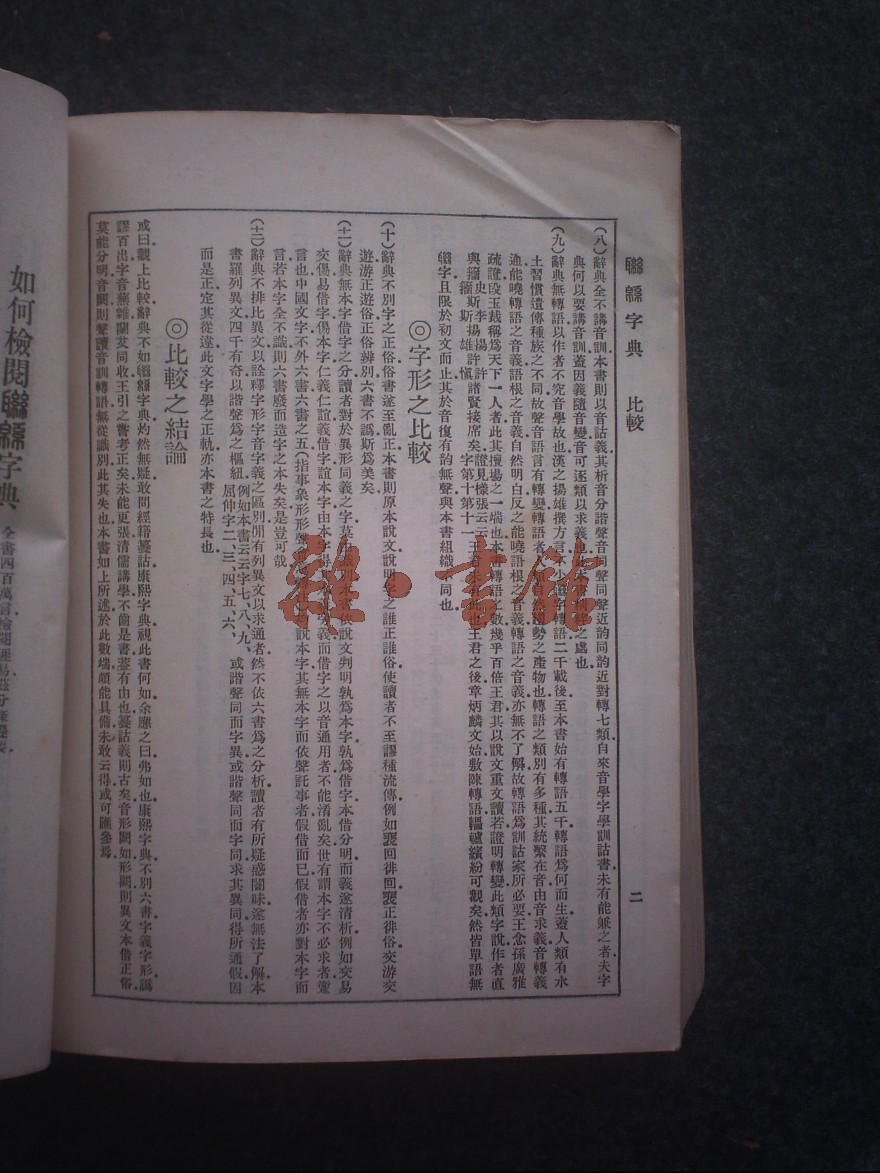 聯緜字典　比較
二
(八)辭典全不講音訓本書則以音詁義其析音分諧聲音同聲同聲近韵同韵近對轉七類自來音學字學訓詁書未有能兼之者夫字
典何以要講音訓蓋因義隨音變音可逐類以求義也此本書之處也
(九)辭典無轉語以作者不究音學故也漢之揚雄撰方言轉語二千載後至本書始有轉語五千轉語爲何而生蓋人類有水
土習慣遺傳種族之不同故聲音語言有轉變轉語者人類自然趨勢之產物也轉語之類別有多種其統繫在音由音求義音轉義
通能曉轉語之音義語根之音義自然明白反之能曉語根之音義轉語之音義亦無不了解故轉語爲訓詁家所必要王念孫廣雅
疏證段玉裁稱爲天下一人者此其擅場之一端也本書轉語之數幾乎百倍王君其以說文重文讀若證明轉變此類字說作者直
與籀史斯李揚雄許慎諸賢接席矣王君之後章炳麟文始敷陳轉語轀轤繽紛可觀矣然皆單語無
聯字且限於初文而止其於音復有韵無聲與本書組織不同也
◎字形之比較
(十)辭典不別字之正俗俗書遂至亂正本書則原本說文說明字之誰正誰俗使讀者不至謬種流傳例如裵回徘回裵正徘俗交游交
遊游正遊俗正俗辨別六書不譌斯爲美矣
(十一)辭典無本字借字之分讀者對於異形同義之字莫本書依說文判明孰爲本字孰爲借字本借分明而義遂清析例如交易
交傷易借字傷本字仁義仁誼義借字誼本字由本字得義而借字之以音通用者不能淆亂矣世有謂本字不必求者蘧
言也中國文字不外六書六書之五(指事象形形聲說本字其無本字而依聲託事者假借而已假借者亦對本字而
言若本字全不識則六書廢而造字之本失矣是豈可哉
(十二)辭典不排比異文以詮釋字形字音字義之區別間有列異文以求通者然不依六書爲之分析讀者有所疑惑闇昧遂無法了解本
書羅列異文四千有奇以諧聲爲之樞紐例如本書云云字七、八、九、屈伸字二、三、四、五、六、或諧聲同而字異或諧聲同而字同求其異同得所通假因
而是正定其從違此文字學之正軌亦本書之特長也
◎比較之結論
或曰觀上比較辭典不如聯緜字典灼然無疑敢問經籍籑詁康熙字典視此書何如余應之曰弗如也康熙字典不別六書字義字形譌
謬百出字音蕪雜闌芄同收王引之嘗考正矣未能更張清儒講學不齒是書蓋有由也籑詁義則古矣音形闕如形闕則異文本借正俗
莫能分明音闕則聲讀音訓轉語無從識別此其失也本書如上所述於此數端頗能具備未敢云得或可匯參焉
如何檢閱聯緜字典
全書四百萬言檢閱